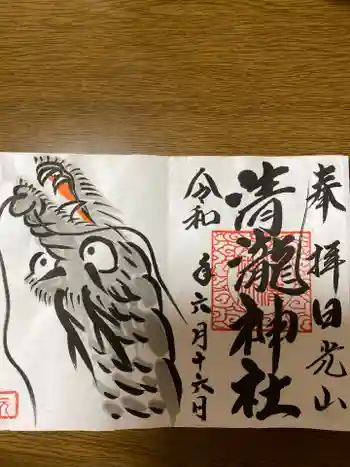 奉拝日光山
清瀧神社
令和年六月十六日